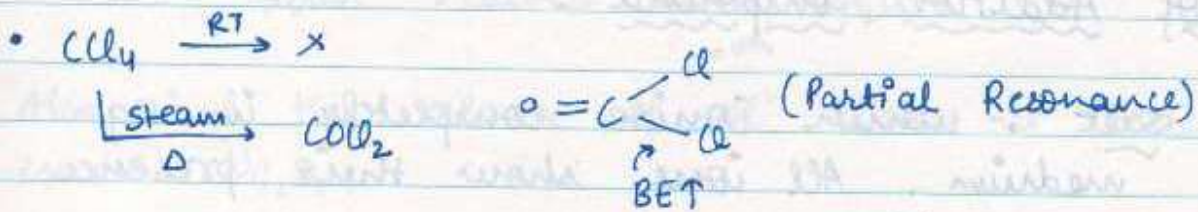 • CCl4 —RT→ ×
steam
Δ → COCl2
O = C
Cl
Cl
(Partial Resonance)
BE↑